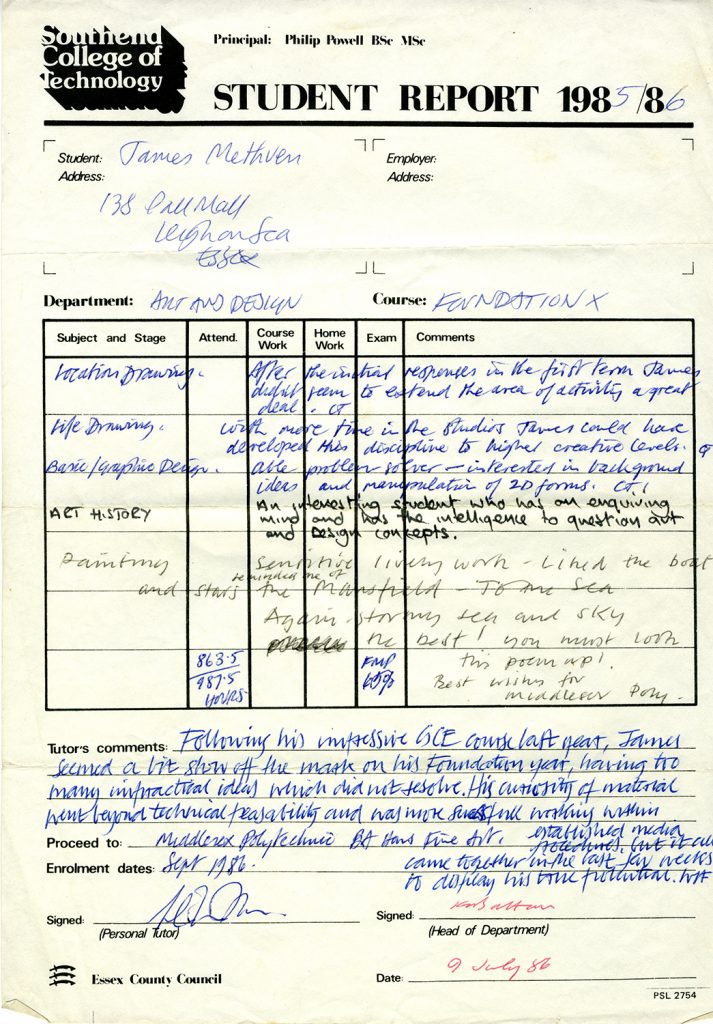 Southend
College of
Technology
Principal: Philip Powell BSc MSc
STUDENT REPORT 1985/86
Student: James Methven
Employer:
Address:
Address:
138 Pall Mall
Leigh on Sea
Essex
Department: ART AND DESIGN
Course: FOUNDATION X
Subject and Stage Attend. Course Work Home Work Exam Comments
Location Drawing. After the initial responses in the first term James
didn't seem to extend the area of activity a great
deal. CT
Life Drawing. With more time in the studios James could have
developed this discipline to higher creative levels. CT
Basic/Graphic Design. able problem solver – interested in background
ideas and manipulation of 2D forms. CT
ART HISTORY An interesting student who has an enquiring
mind and has the intelligence to question art
and Design concepts.
Painting Sensitive lively work - Liked the boat
and stars reminded me of the Mansfield - To the Sea
Again stormy sea and sky
the best! you must look
this poem up!
Best wishes for
Middlesex Poly.
863.5
987.5
HOURS
FMP
65%
Tutor's comments: Following his impressive GCE course last year, James
seemed a bit slow off the mark on his Foundation year, having too
many impractical ideas which did not resolve. His curiosity of material
went beyond technical feasability and was more successfull working within
established media
procedures, but it all
came together in the last few weeks
to display his true potential.
Proceed to: Middlesex Polytechnic BA Hons Fine Art.
Enrolment dates: Sept 1986.
Signed:
(Personal Tutor)
Signed:
(Head of Department)
Essex County Council
Date: 9 July 86
PSL 2754